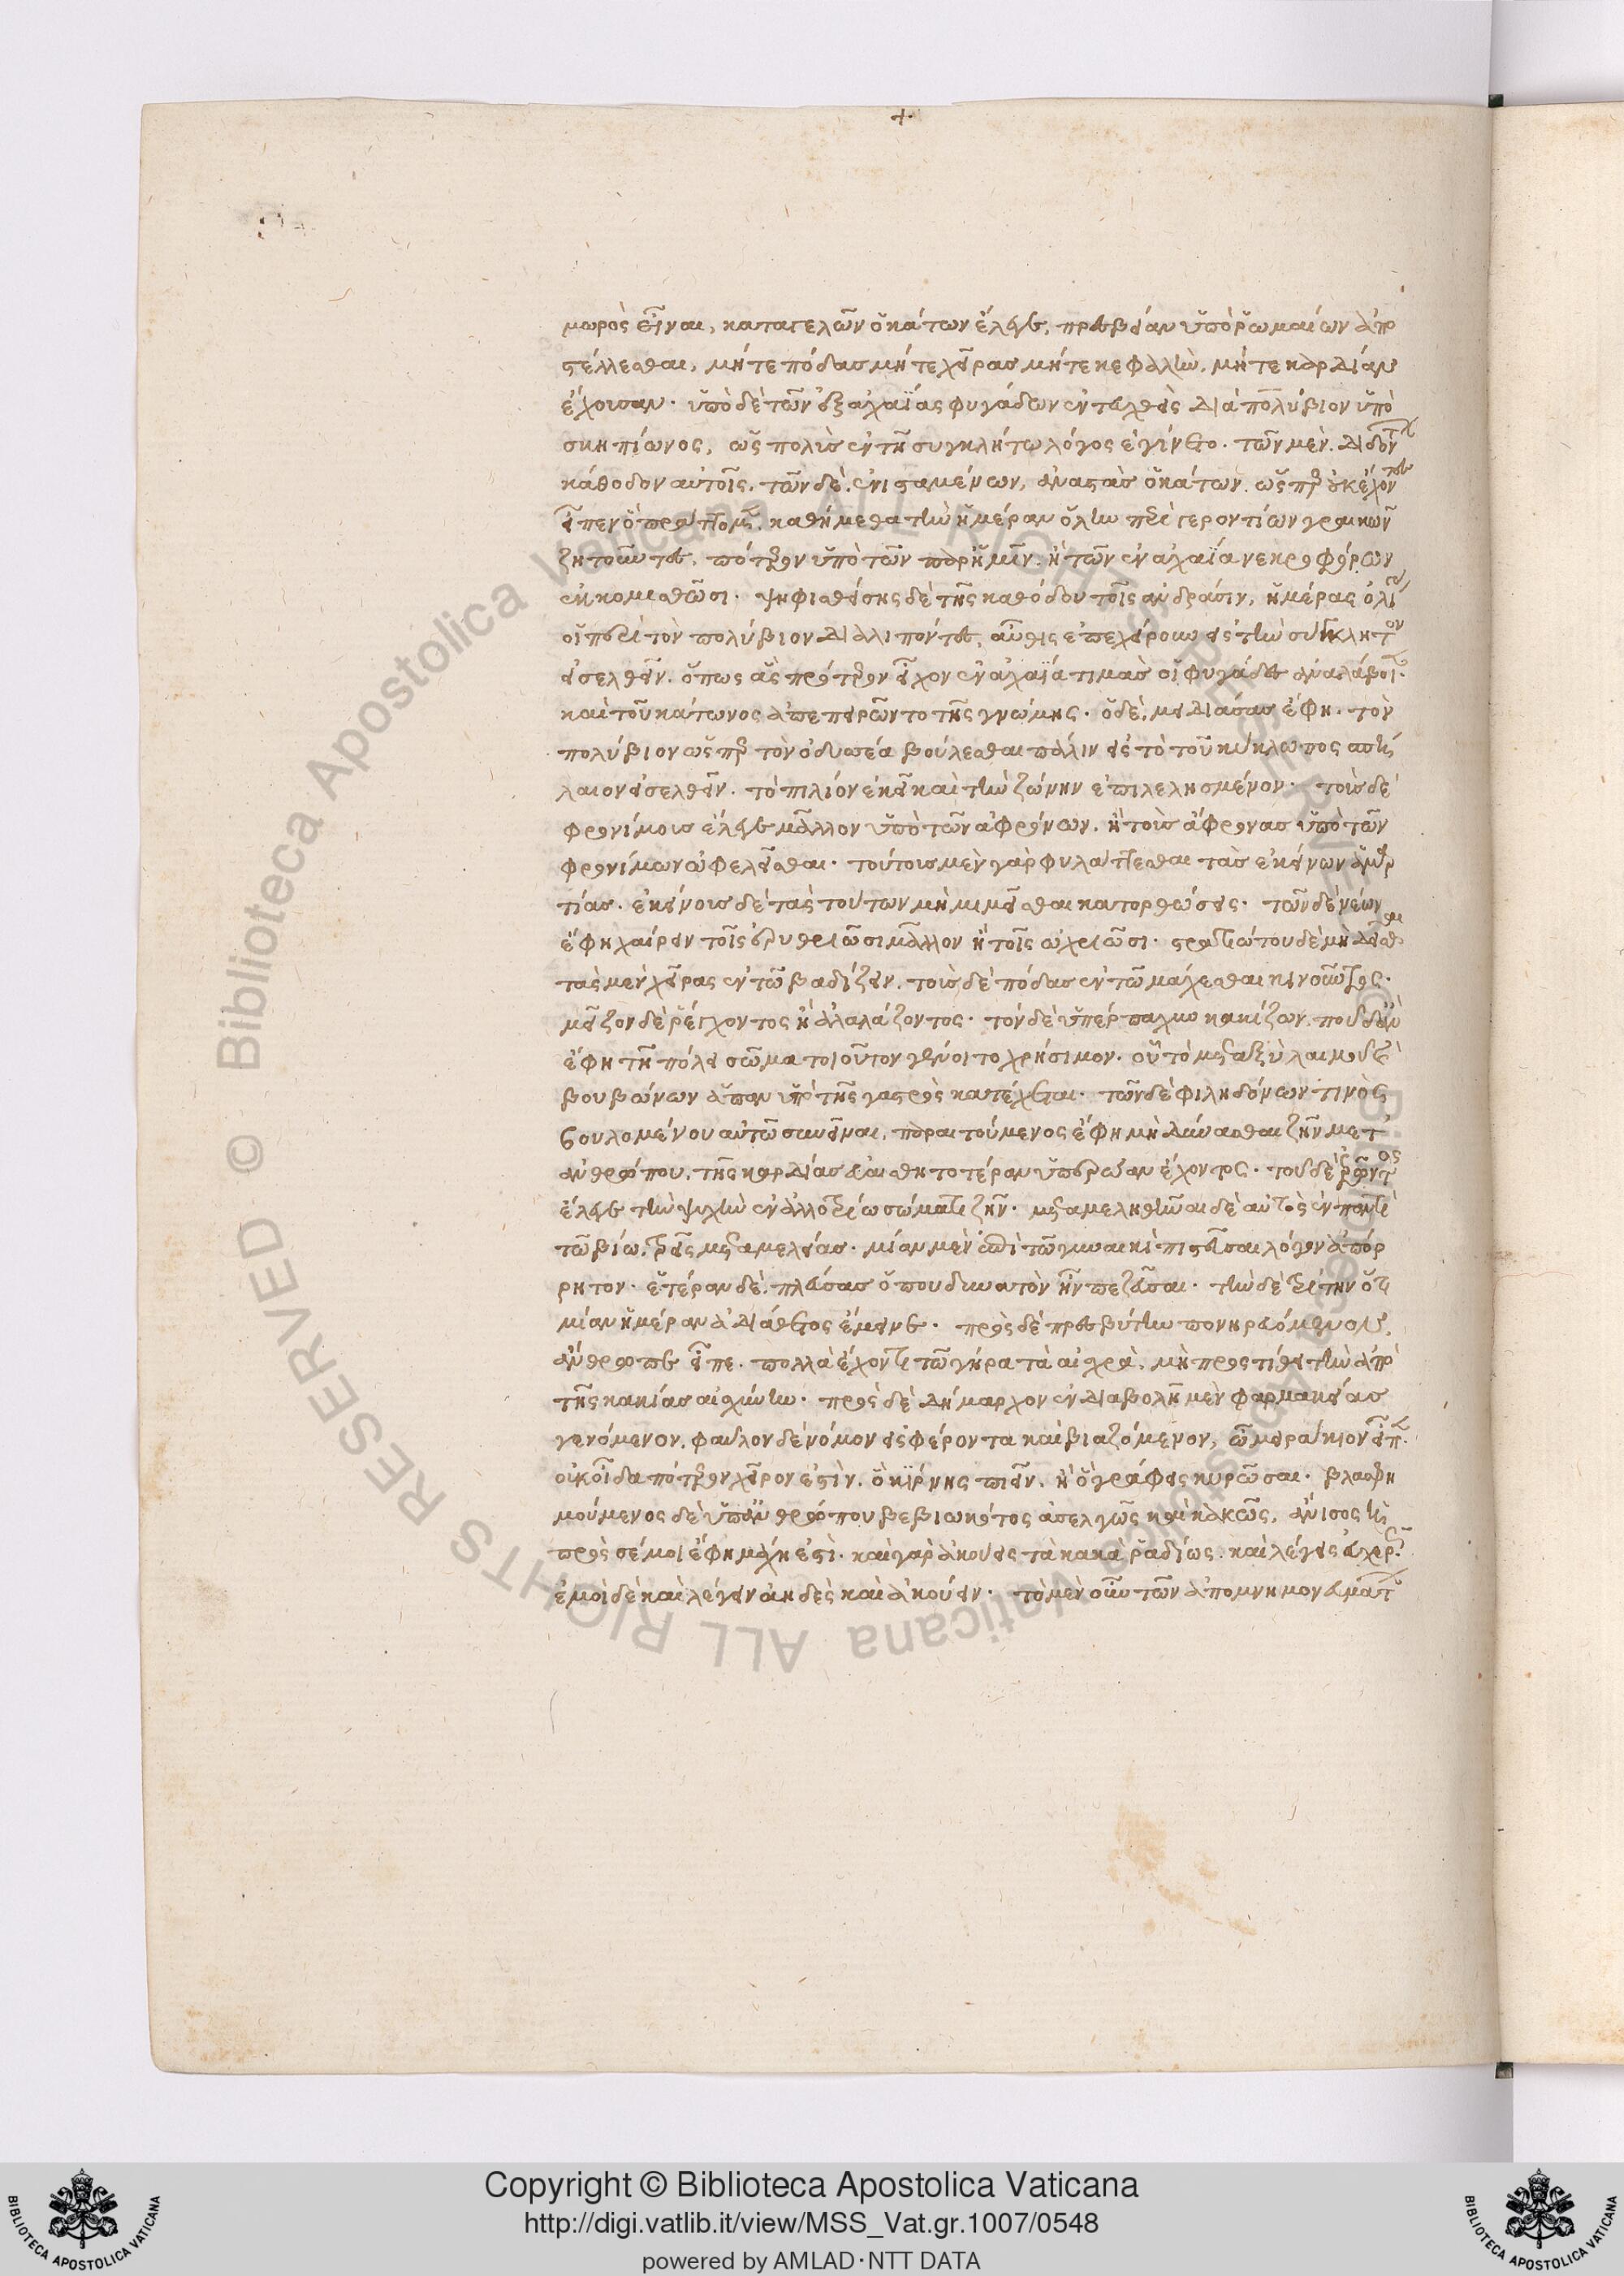 +
μωρὸς εἶναι, καταγελῶν ὁ κάτων ἔλεγε, πρεσβείαν ὑπὸ ῥωμαίων ἀπο
στέλλεσθαι, μήτε πόδας μήτε χεῖρας μήτε κεφαλὴν, μήτε καρδίαν
ἔχουσαν. ὑπὸ δὲ τῶν ἐξ ἀχαΐας φυγάδων ἐντευχθεὶς διὰ πολύβιον ὑπὸ
σκηπίωνος, ὡς πολὺς ἐν τῇ συγκλήτω λόγος ἐγίνετο. τῶν μὲν διδόντων
κάθοδον αὐτοῖς, τῶν δὲ ἐνισταμένων, ἀναστὰς ὁ κάτων. ὥσπερ οὐκ ἔχοντες
εἶπεν ὃ πράττομεν, καθήμεθα τὴν ἡμέραν ὅλην περὶ γεροντίων γραικῶν
ζητοῦντες, πότερον ὑπὸ τῶν παρ' ἡμῖν ἢ τῶν ἐν ἀχαΐα νεκροφόρων
ἐκκομισθῶσι. ψηφισθείσης δὲ τῆς καθόδου τοῖς ἀνδράσιν, ἡμέρας ὀλίγας
οἱ περὶ τὸν πολύβιον διαλιπόντες, αὖθις ἐπεχείρουν εἰς τὴν σύγκλητον
εἰσελθεῖν, ὅπως ἃς πρότερον εἶχον ἐν ἀχαΐα τιμὰς οἱ φυγάδες ἀναλάβοιεν.
καὶ τοῦ κάτωνος ἀπεπειρῶντο τῆς γνώμης. ὁ δὲ, μειδιάσας ἔφη. τὸν
πολύβιον ὥσπερ τὸν ὀδυσσέα βούλεσθαι πάλιν εἰς τὸ τοῦ κύκλωπος σπή
λαιον εἰσελθεῖν. τὸ πιλίον ἐκεῖ καὶ τὴν ζώνην ἐπιλελησμένον. τοὺς δὲ
φρονίμους ἔλεγε μᾶλλον ὑπὸ τῶν ἀφρόνων, ἢ τοὺς ἄφρονας ὑπὸ τῶν
φρονίμων ὠφελεῖσθαι. τούτους μὲν γὰρ φυλάττεσθαι τὰς ἐκείνων ἁμαρ
τίας. ἐκείνους δὲ τὰς τούτων μὴ μιμεῖσθαι κατορθώσεις. τῶν δὲ νέων
ἔφη χαίρειν τοῖς ἐρυθριῶσι μᾶλλον ἢ τοῖς ὠχριῶσι. στρατιώτου δὲ μὴ δεῖσθαι
τὰς μὲν χεῖρας ἐν τῶ βαδίζειν, τοὺς δὲ πόδας ἐν τῶ μάχεσθαι κινοῦντος.
μεῖζον δὲ ῥέγχοντος ἢ ἀλαλάζοντος. τὸν δὲ ὑπέρπαχυν κακίζων, ποῦ δ' ἂν
ἔφη τῇ πόλει σῶμα τοιοῦτον γένοιτο χρήσιμον. οὗ τὸ μεταξὺ λαιμοῦ καὶ
βουβώνων ἅπαν ὑπὸ τῆς γαστρὸς κατέχεται. τῶν δὲ φιληδόνων τινὸς
βουλομένου αὐτῶ συνεῖναι, παραιτούμενος ἔφη μὴ δύνασθαι ζῆν μετ'
ἀνθρώπου, τῆς καρδίας εὐαισθητοτέραν ὑπερώαν ἔχοντος. τοῦ δὲ ἐρῶντος
ἔλεγε τὴν ψυχὴν ἐν ἀλλοτρίω σώματι ζῆν. μεταμεληθῆναι δὲ αὐτὸς ἐν παντὶ
τῶ βίω, τρεῖς μεταμελείας. μίαν μὲν ἐπὶ τῶ γυναικὶ πιστεῦσαι λόγον ἀπόρ
ρητον. ἑτέραν δὲ, πλεύσας ὅπου δυνατὸν ἦν πεζεῦσαι. τὴν δὲ τρίτην ὅτι
μίαν ἡμέραν ἀδιάθετος ἔμεινε. πρὸς δὲ πρεσβύτην πονηρευόμενον,
ἄνθρωπε εἶπε. πολλὰ ἔχοντι τῶ γήρα τὰ αἰσχρὰ, μὴ προστίθει τὴν ἀπὸ
τῆς κακίας αἰσχύνην. πρὸς δὲ δήμαρχον ἐν διαβολῇ μὲν φαρμακείας
γενόμενον, φαῦλον δὲ νόμον εἰσφέροντα καὶ βιαζόμενον, ὦ μειράκιον εἶπεν.
οὐκ οἶδα πότερον χεῖρον ἐστὶν, ὃ κίρνης πιεῖν, ἢ ὃ γράφεις κυρῶσαι. βλασφη
μούμενος δὲ ὑπ' ἀνθρώπου βεβιωκότος ἀσελγῶς καὶ κακῶς, ἄνισος ἡ
πρὸς σέ μοι ἔφη μάχη ἐστὶ. καὶ γὰρ ἀκούεις τὰ κακὰ ῥαδίως, καὶ λέγεις εὐχερῶς.
ἐμοὶ δὲ καὶ λέγειν ἀηδὲς καὶ ἀκούειν. τὸ μὲν οὖν τῶν ἀπομνημονευμάτων
Copyright © Biblioteca Apostolica Vaticana
http://digi.vatlib.it/view/MSS_Vat.gr.1007/0548
powered by AMLAD·NTT DATA
BIBLIOTECA APOSTOLICA VATICANA
BIBLIOTECA APOSTOLICA VATICANA
© Biblioteca Apostolica Vaticana ALL RIGHTS RESERVED
© Biblioteca Apostolica Vaticana ALL RIGHTS RESERVED